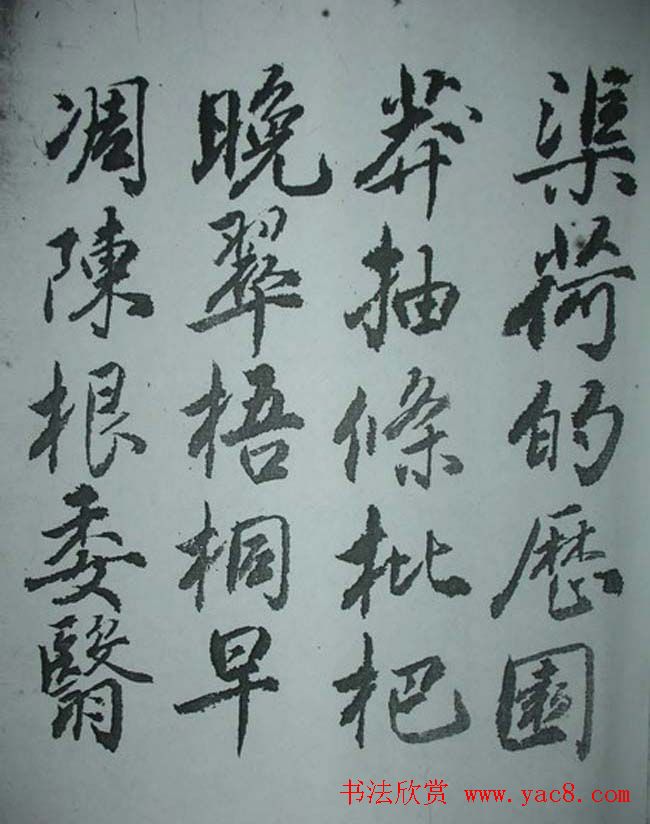 渠荷的歷園
莽抽條枇杷
晚翠梧桐早
凋陳根委翳
书法欣赏 www.yac8.com